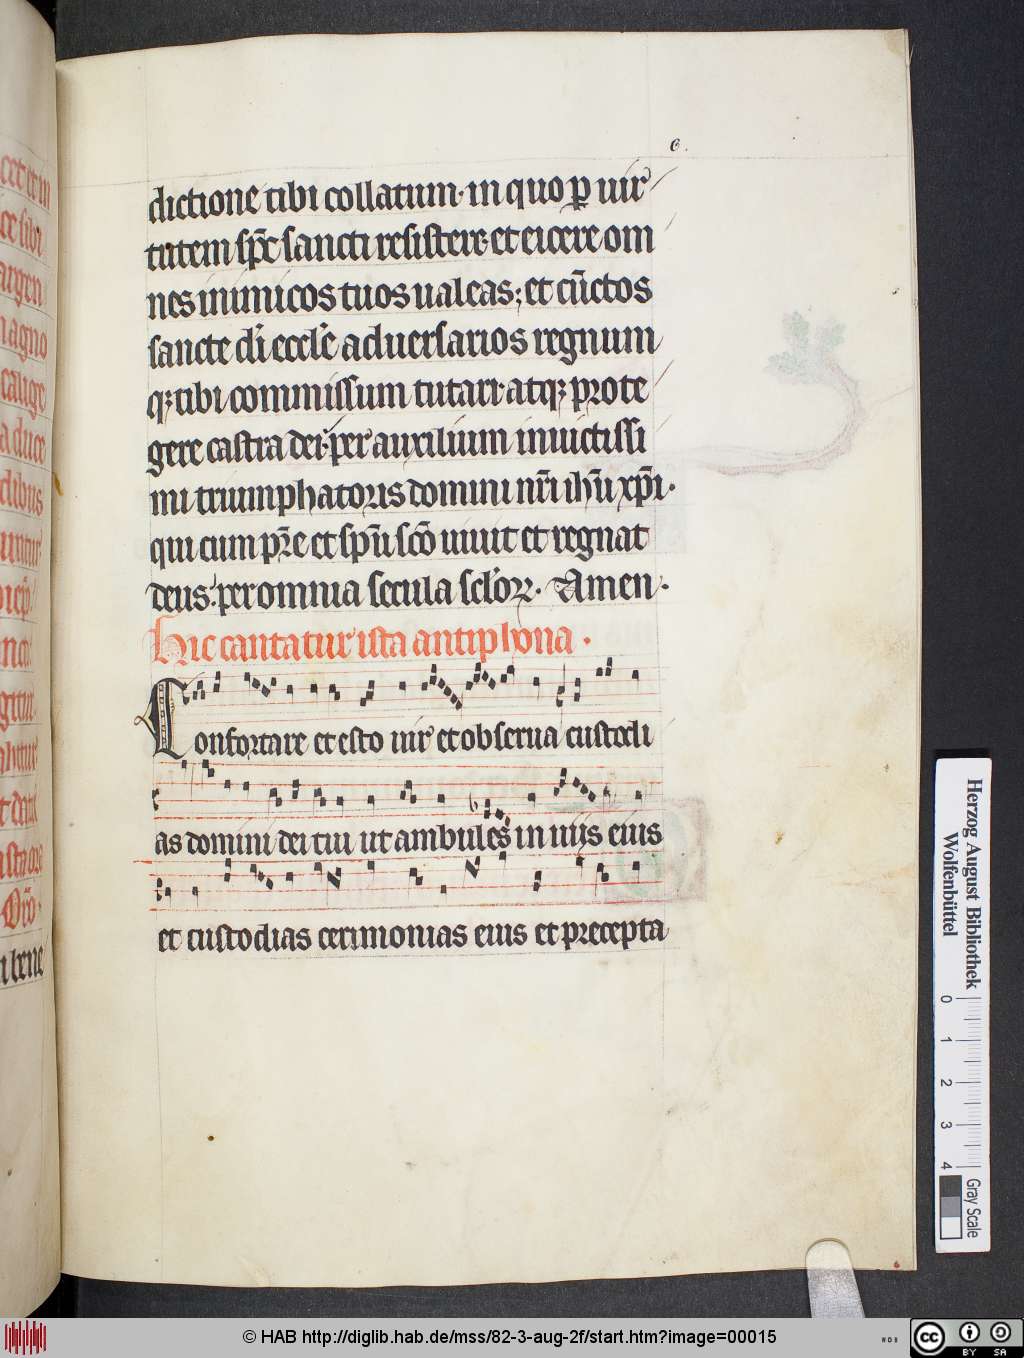 cet et in
ce sibi
argen
magno
calige
aduce
dibus
untur
piep̄
gitur
abitur
t dauit
ista ore
Orō·
i bene
6.
dictione tibi collatum· in quo ꝑ uir
tutem sp̄c sancti resistere· et eicere om
nes inimicos tuos ualeas; et cūctos
sancte dī eccle͞ aduersarios regnum
qꝫ tibi commissum tutari· atqꝫ prote
gere castra dei· per auxilium inuictissi
mi triumphatoris domini nr̄i ihū xp̄i·
qui cum pr̄e et sp̄u scō uiuit et regnat
deus· per omnia secula sclōꝝ· Amen·
Hic cantatur ista antiphona·
Confortare et esto uir et obserua custodi
as domini dei tui ut ambules in uiis eius
et custodias cerimonias eius et precepta
Herzog August Bibliothek
Wolfenbüttel
0 1 2 3 4
Gray Scale
© HAB http://diglib.hab.de/mss/82-3-aug-2f/start.htm?image=00015
WDB
cc BY SA